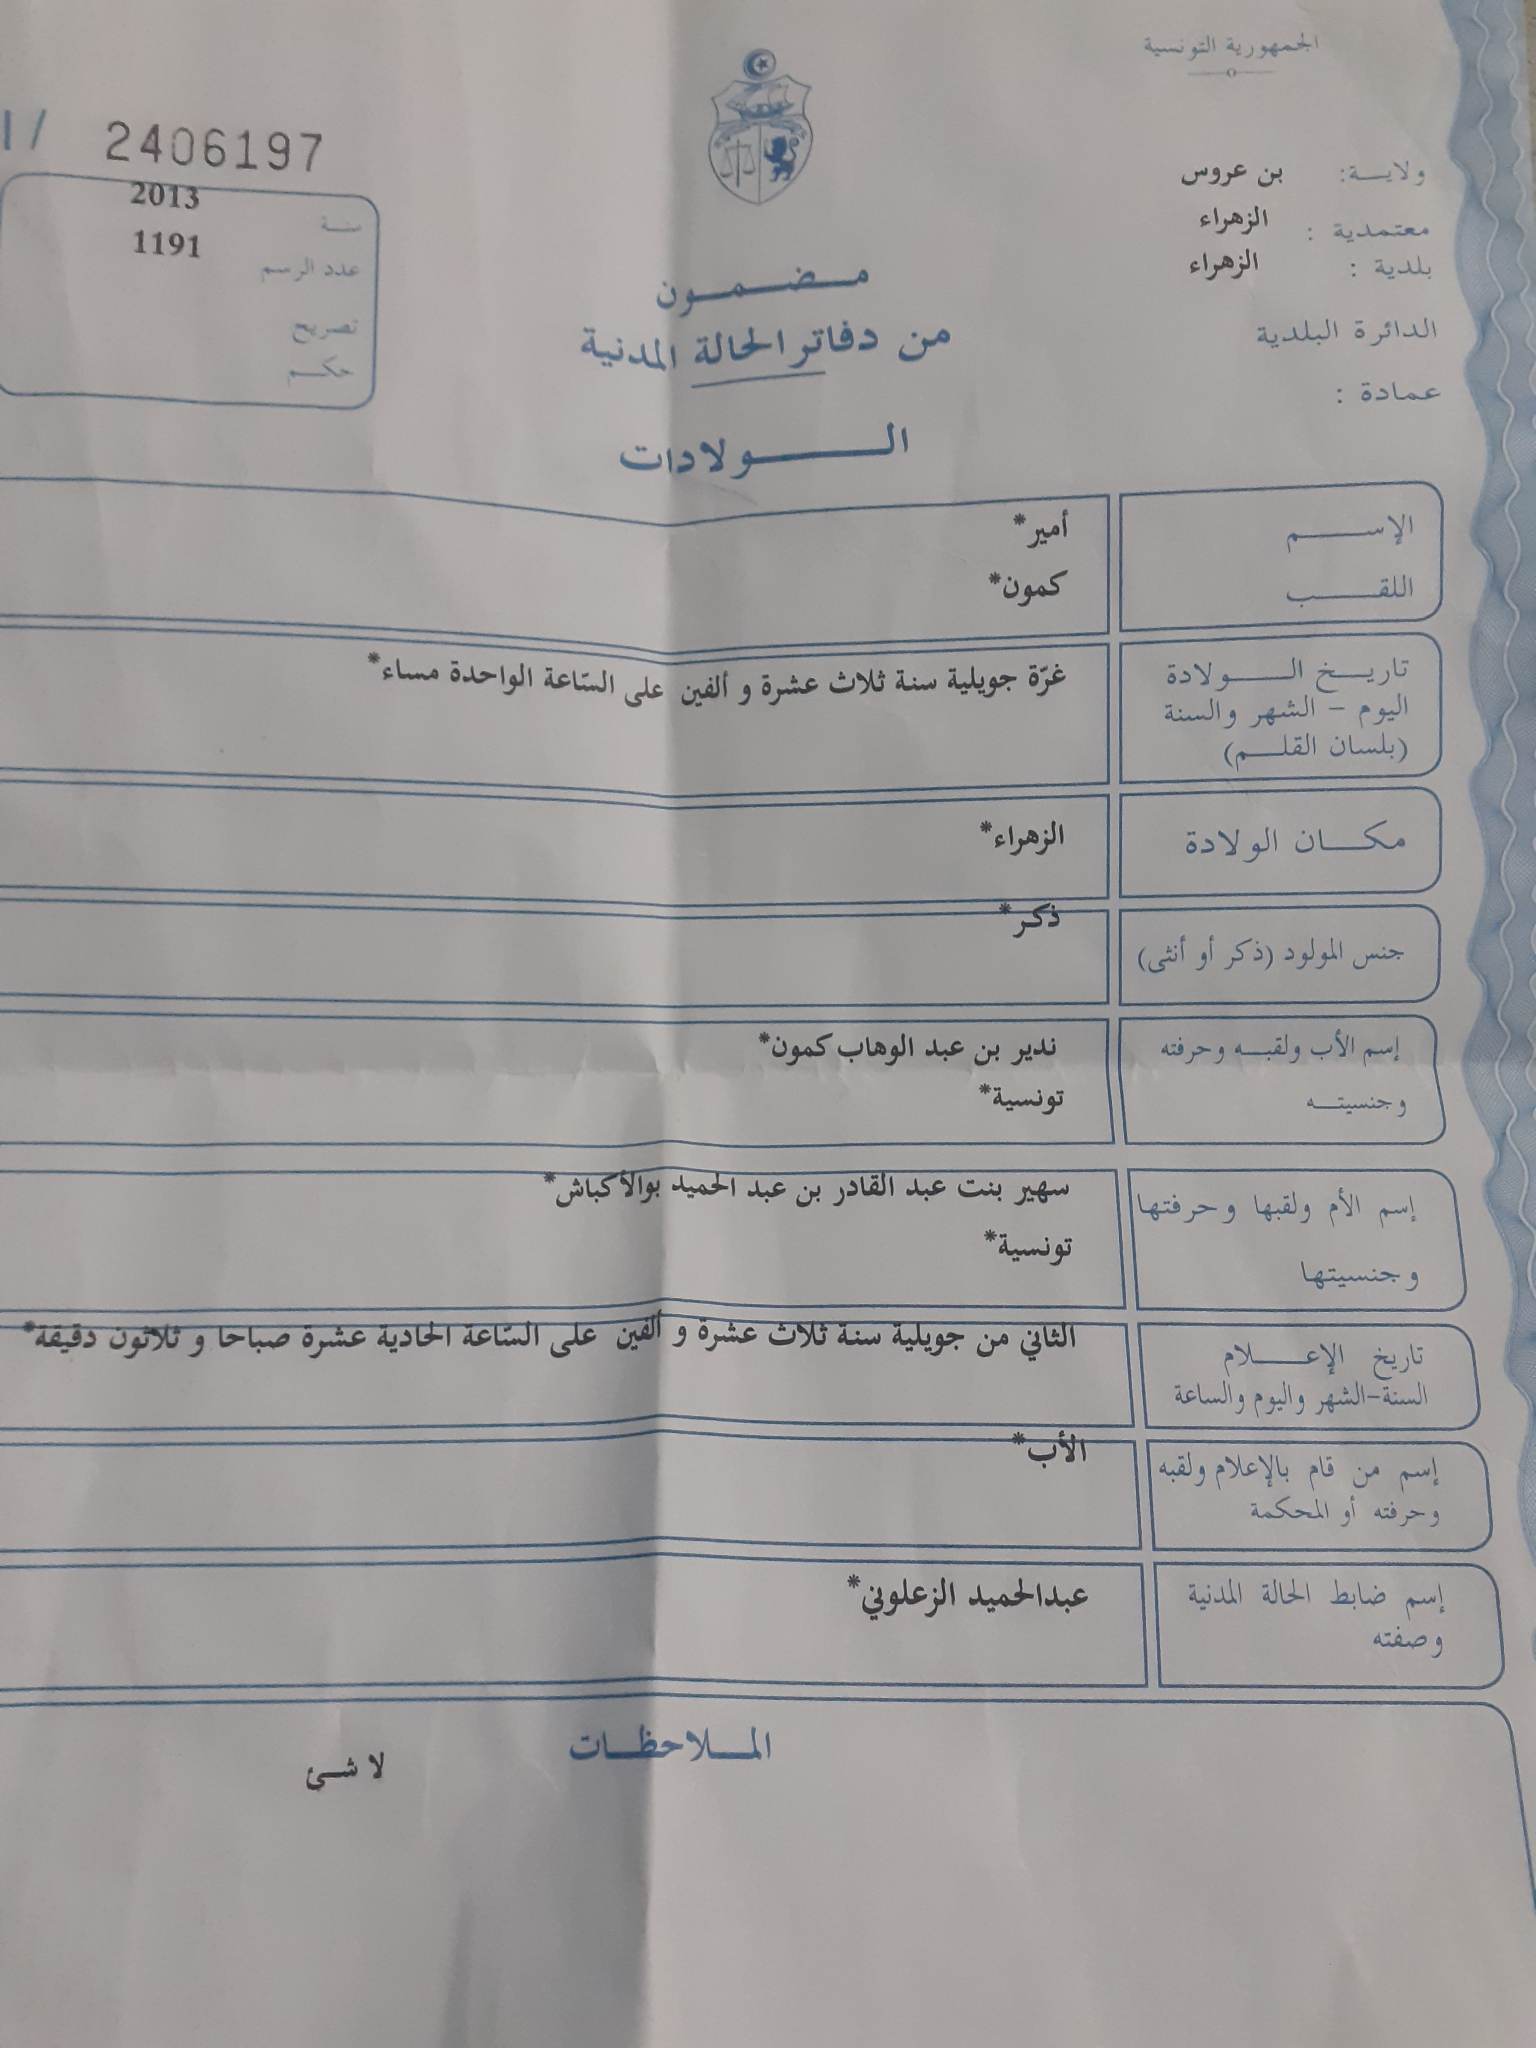 الجمهورية التونسية
ولايــة: بن عروس
معتمدية : الزهراء
بلدية : الزهراء
الدائرة البلدية
عمادة :
2406197 / ا
سنــة 2013
عدد الرسم 1191
تصريح
حكــم
مــضــمــون
من دفاتر الحالة المدنية
الــــولادات
الإســــم أمير*
اللقــــب كمون*
تاريــخ الــــولادة غرّة جويلية سنة ثلاث عشرة و ألفين على السّاعة الواحدة مساء*
اليوم – الشهر والسنة
(بلسان القلــم)
مكــان الولادة الزهراء*
جنس المولود (ذكر أو أنثى) ذكر*
إسم الأب ولقبــه وحرفته ندير بن عبد الوهاب كمون*
وجنسيتــه تونسية*
إسم الأم ولقبها وحرفتها سهير بنت عبد القادر بن عبد الحميد بوالأكباش*
وجنسيتها تونسية*
تاريخ الإعــــلام الثاني من جويلية سنة ثلاث عشرة و ألفين على السّاعة الحادية عشرة صباحا و ثلاثون دقيقة*
السنة-الشهر واليوم والساعة
إسم من قام بالإعلام ولقبه الأب*
وحرفته أو المحكمة
إسم ضابط الحالة المدنية عبدالحميد الزعلوني*
وصفته
المــلاحظــات
لا شــئ